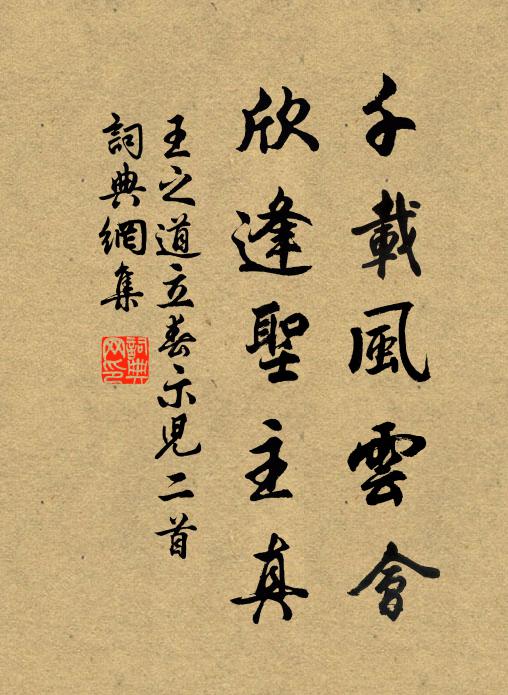 千載風雲會
欣逢聖主真
王之道立春示兒二首
詞典網集
詞典
网印